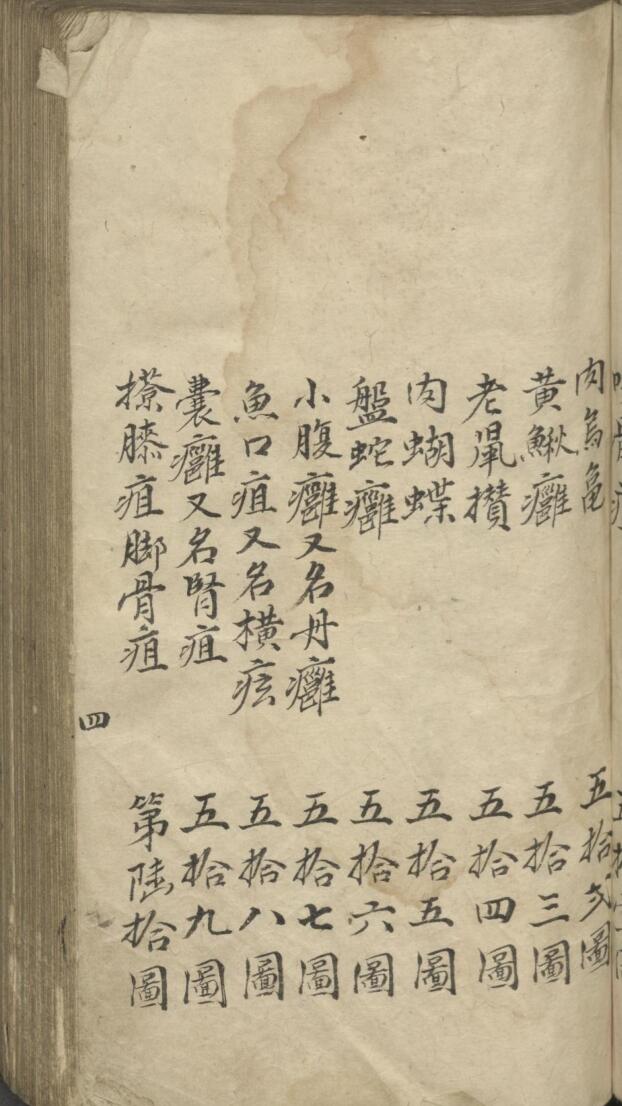 肉烏龜 五拾弍圖
黃鰍癰 五拾三圖
老鼠攢 五拾四圖
肉蝴蝶 五拾五圖
盤蛇癰 五拾六圖
小腹癰又名丹癰 五拾七圖
魚口疽又名橫痃 五拾八圖
囊癰又名腎疽 五拾九圖
膝疽脚骨疽 第陸拾圖
四